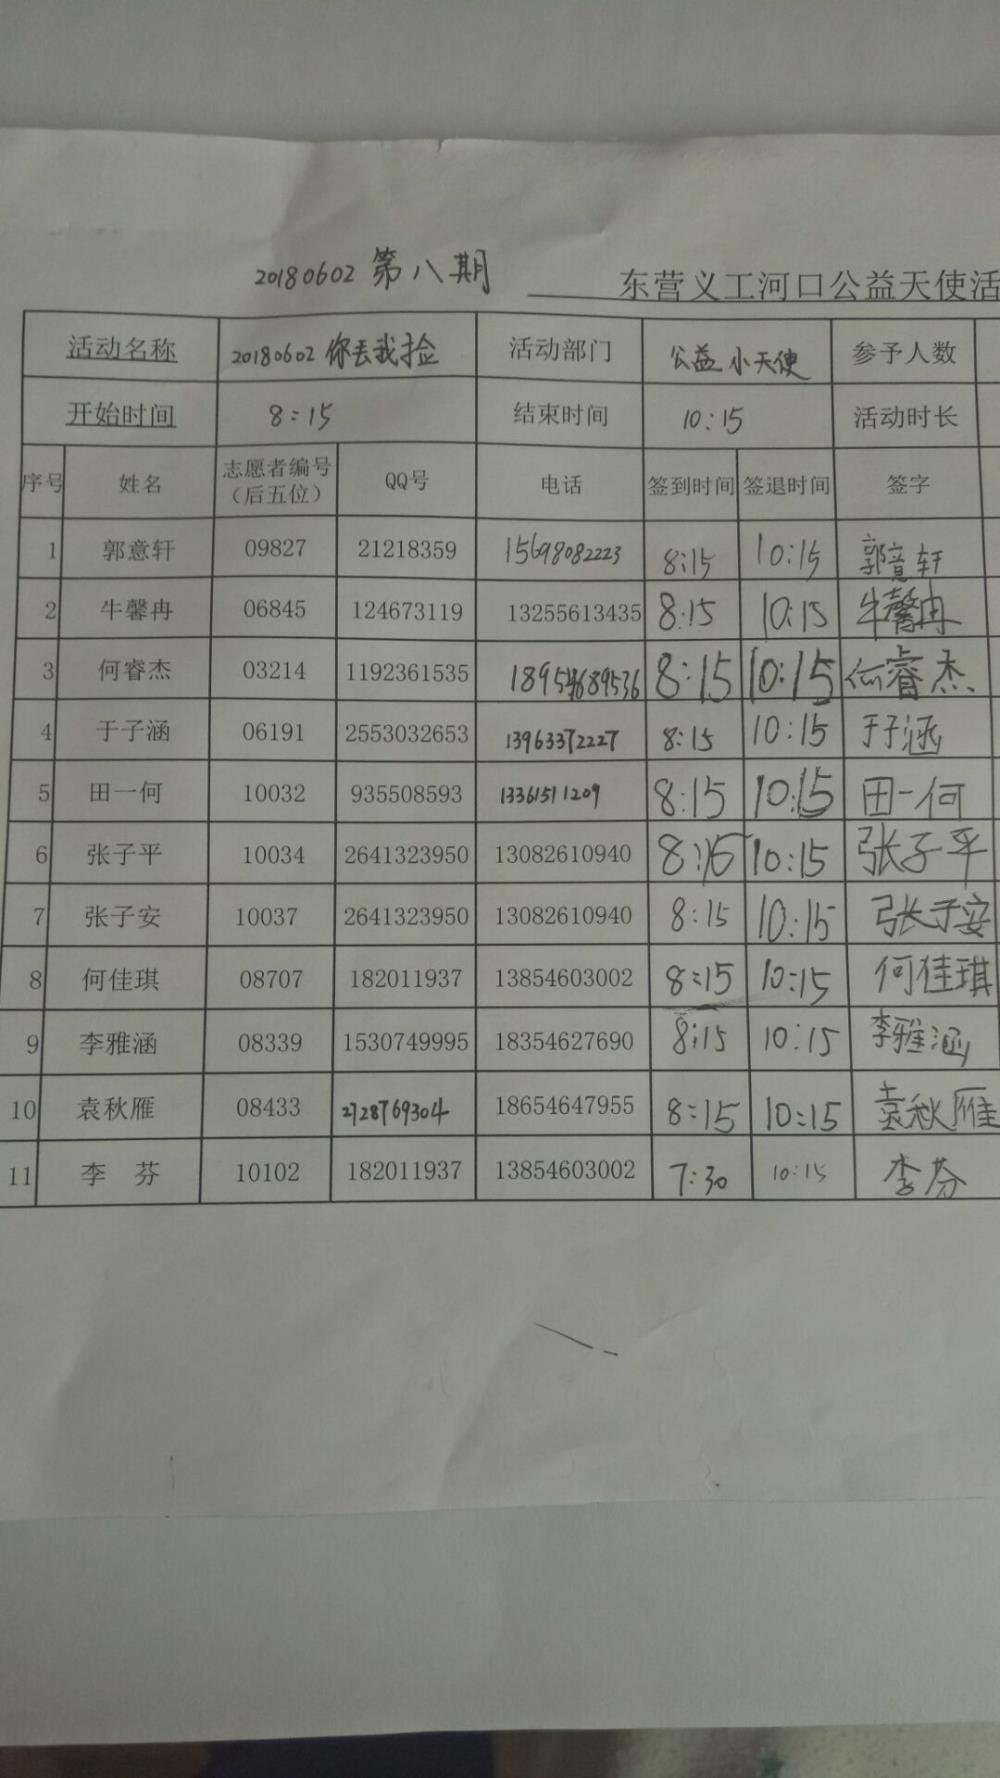 20180602 第八期 东营义工河口公益天使活
活动名称 20180602 你丢我捡 活动部门 公益小天使 参予人数
开始时间 8:15 结束时间 10:15 活动时长
序号 姓名 志愿者编号（后五位） QQ号 电话 签到时间 签退时间 签字
1 郭意轩 09827 21218359 15698082223 8:15 10:15 郭意轩
2 牛馨冉 06845 124673119 13255613435 8:15 10:15 牛馨冉
3 何睿杰 03214 1192361535 8:15 10:15 何睿杰
4 于子涵 06191 2553032653 13963372227 8:15 10:15 于子涵
5 田一何 10032 935508593 13361511209 8:15 10:15 田一何
6 张子平 10034 2641323950 13082610940 10:15 张子平
7 张子安 10037 2641323950 13082610940 8:15 10:15 张子安
8 何佳琪 08707 182011937 13854603002 8:15 10:15 何佳琪
9 李雅涵 08339 1530749995 18354627690 8:15 10:15 李雅涵
10 袁秋雁 08433 2728769304 18654647955 8:15 10:15 袁秋雁
11 李 芬 10102 182011937 13854603002 7:30 10:15 李芬